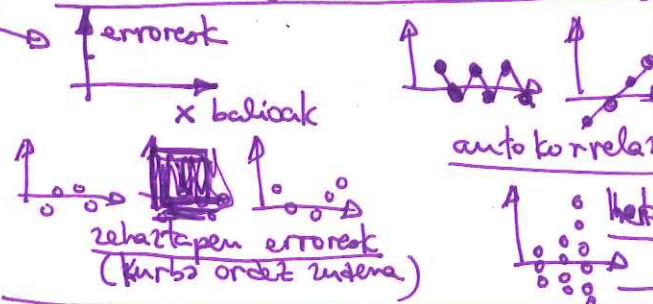 erroreak
x balioak
autokorrelaz
zehaztapen erroreak
(kurba ordez zuzena)
het